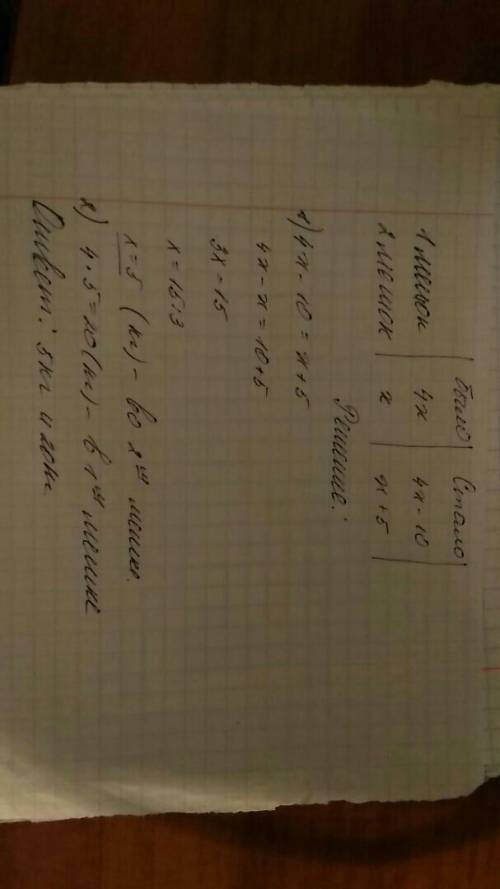 Было Стало
1 мешок 4x 4x - 10
2 мешок x x + 5
Решение:
1) 4x - 10 = x + 5
4x - x = 10 + 5
3x = 15
x = 15:3
x = 5 (кг) - во 2ом мешке.
2) 4 · 5 = 20 (кг) - в 1ом мешке
Ответ: 5 кг и 20 кг.